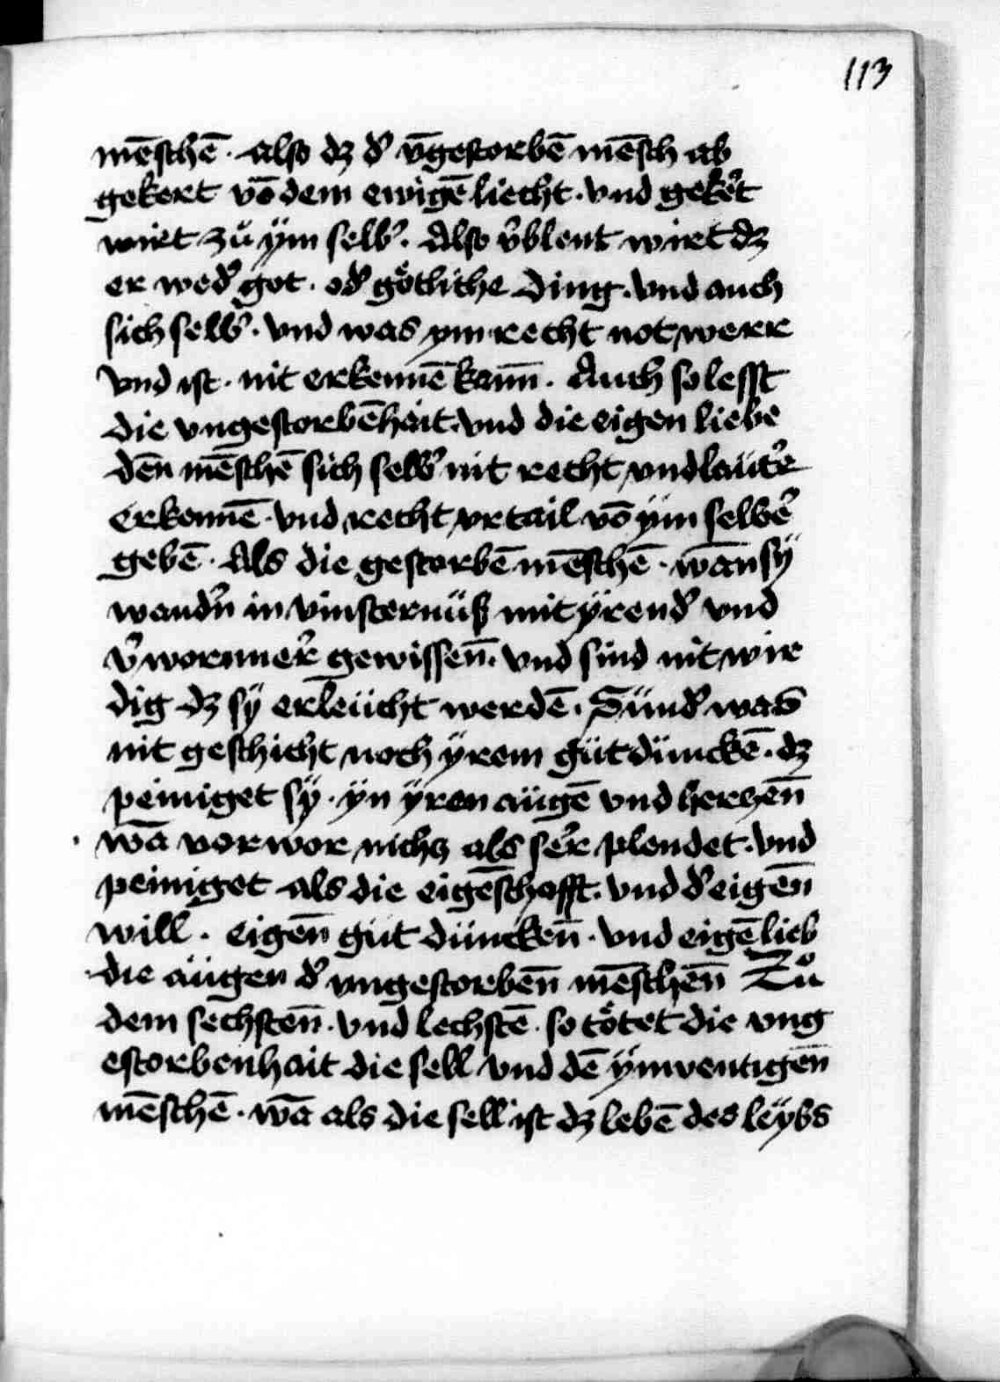 113
mēschē · also dz d᷑ vngestorbē mēsch ab
gekert vō dem ewigē liecht · vnd gekert
wirt zů ÿm selb᷑ · Also v᷑blent wirt dz
er wed᷑ got · od᷑ gőtliche Ding · vnd auch
sich selb᷑ · vnd was ym recht not werr
vnd ist · nit erkennē kann̄ · Auch so lesst
die vngestorbēhait · vnd die eigen liebe
den̄ mēschē sich selb᷑ nit recht vnd laüt᷑e
erkennē · vnd recht vrtail vō ÿm selbe᷑
gebē · Als die gestorbē mēschē · wan̄ sÿ
wandn᷑ in vinsternüß mit ÿrend᷑ vnd
v᷑wormier᷑ gewissen̄ · vnd sind nit wir
dig dz sÿ erleücht werdē · Sünd᷑ was
nit geschicht noch ÿrem güt dünckē · dz
peiniget sÿ · ÿn ÿren aügē vnd herczen̄
wā vorwor nichcz als se᷑r plendet · vnd
peiniget als die eigēschafft · vnd d᷑ eigen̄
will · eigen̄ güt düncken̄ · vnd eigē lieb
die aügen d᷑ vngestorben̄ mēschen̄ Zů
dem sechsten̄ · vnd lechstē · so tőtet die vng
estorbenhait die sell vnd dē ÿnwentigen̄
mēschē · wā als die sell ist dz lebē des leÿbs